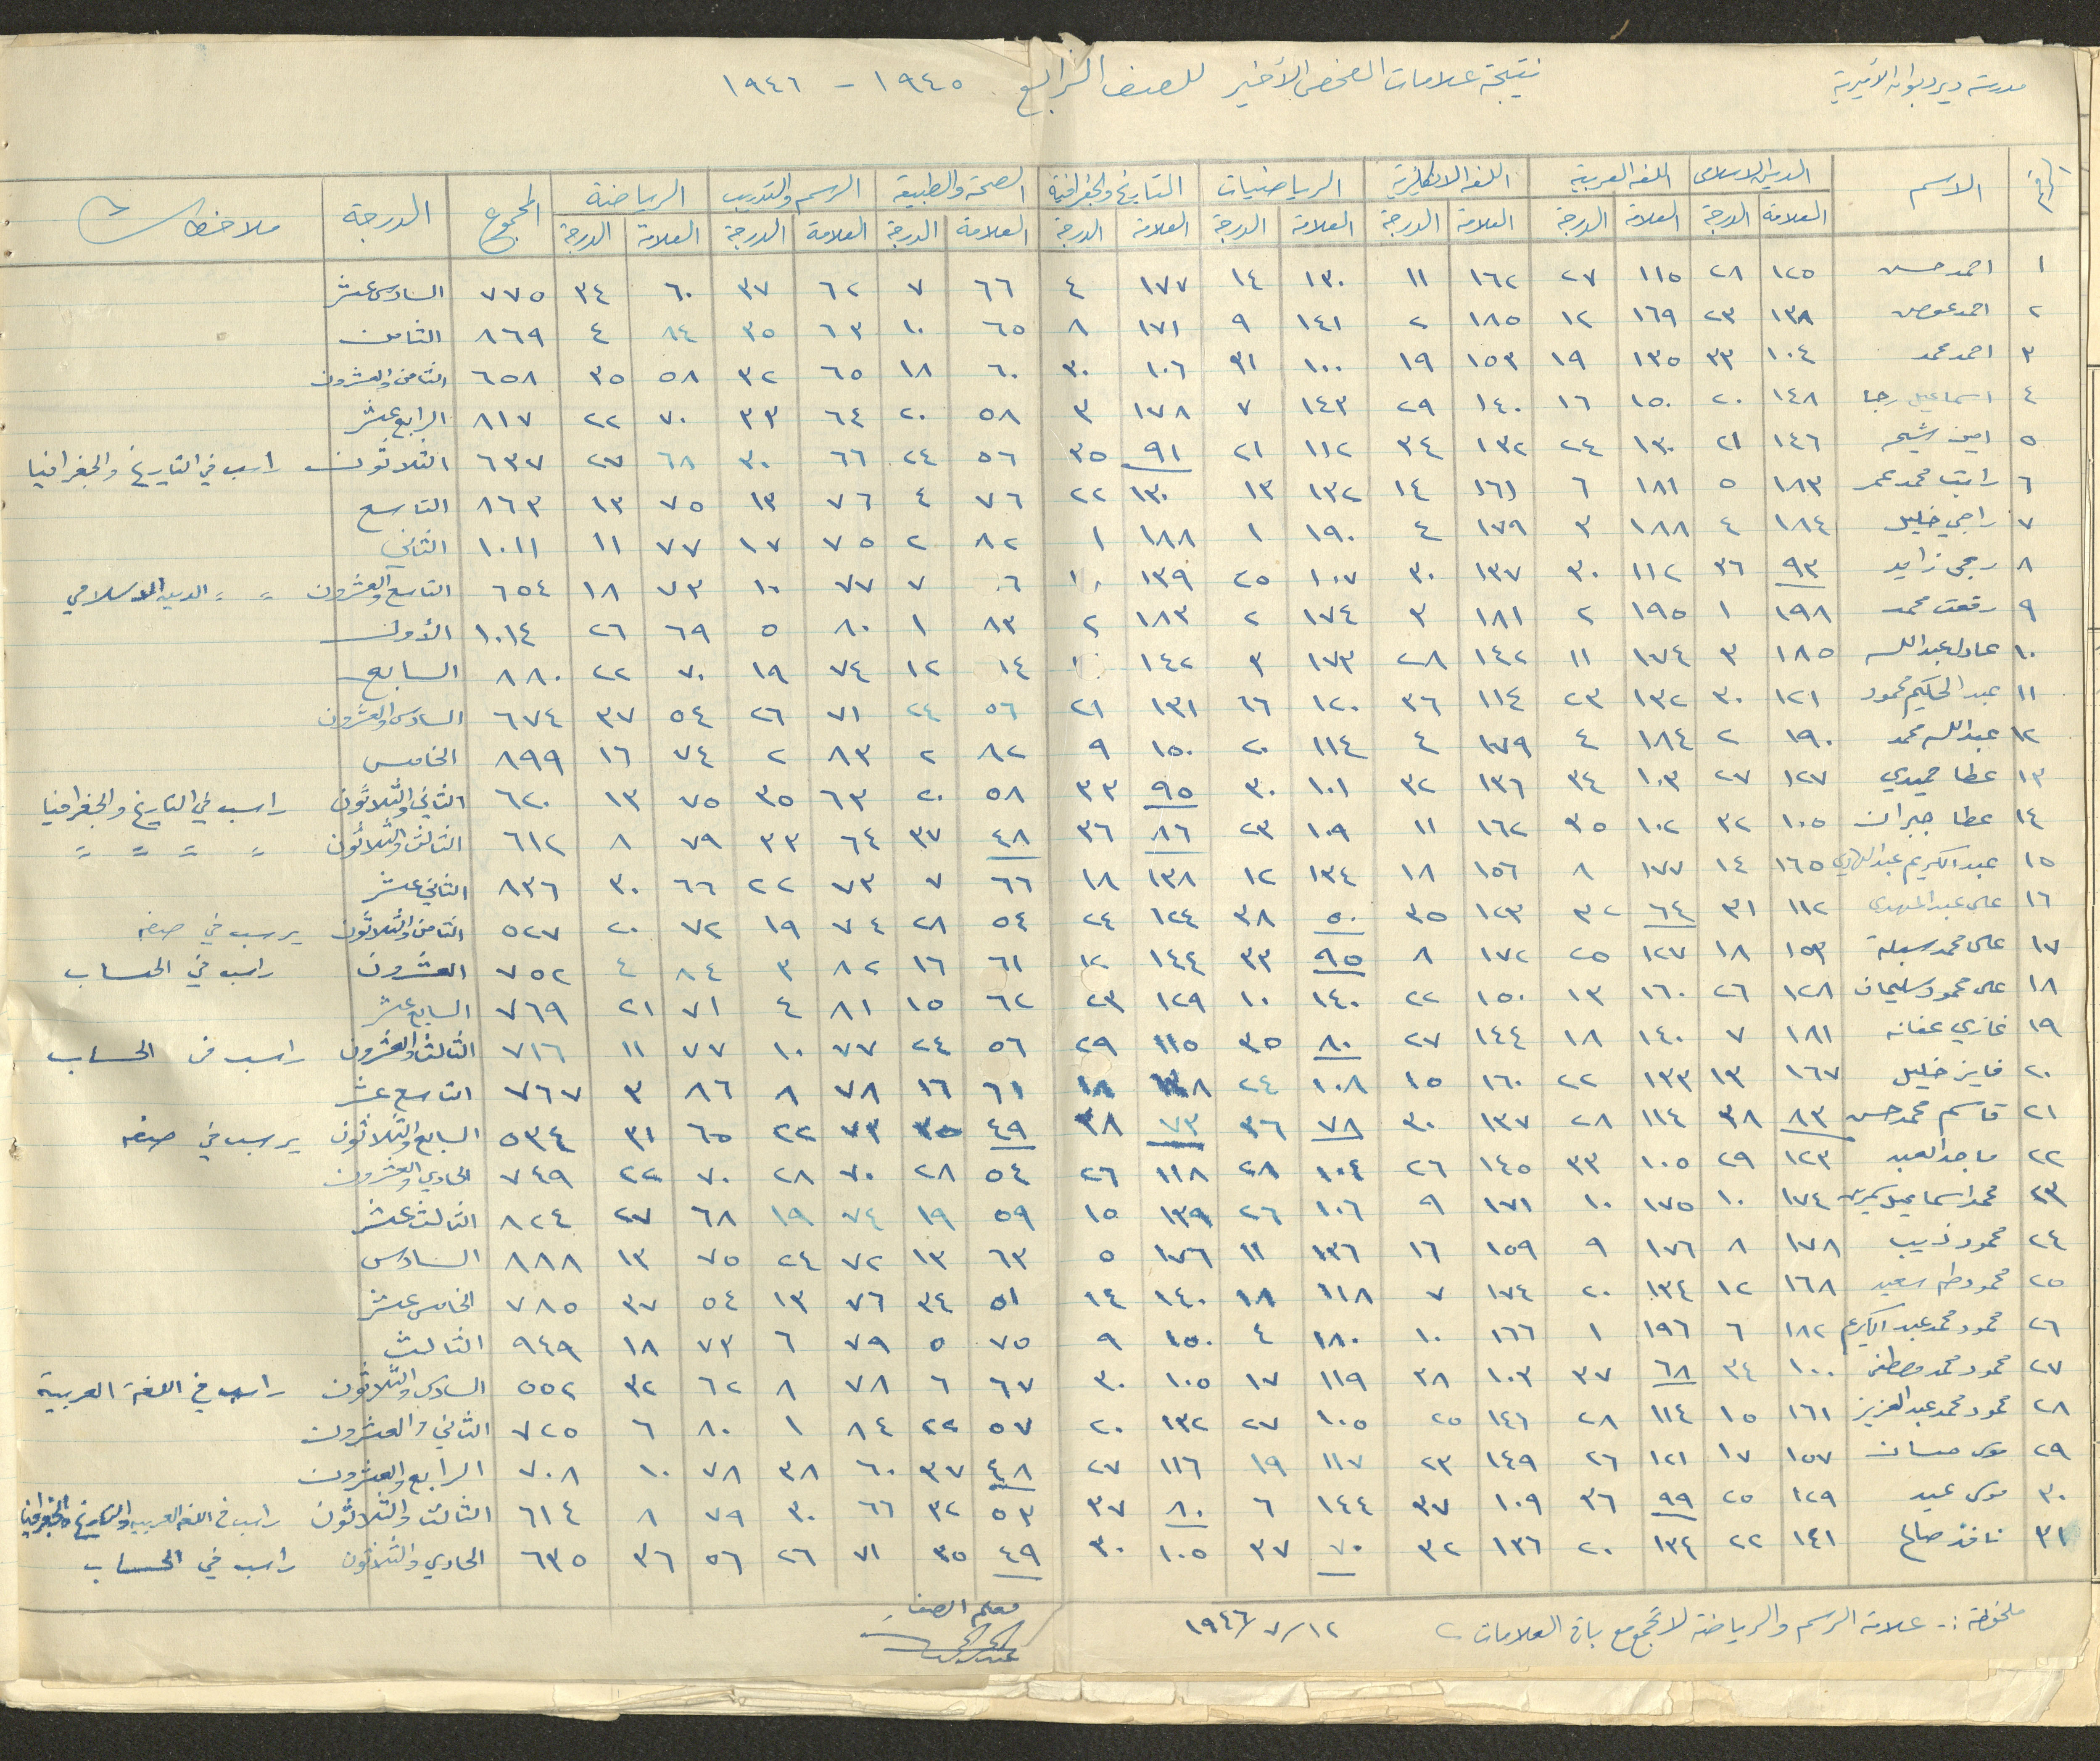 مدرسة دير ديوان الأميرية
نتيجة علامات الفحص الأخير للصف الرابع ١٩٤٥ - ١٩٤٦
الرقم الاسم الدين الاسلامي اللغه العربية اللغه الانكليزية الرياضيات التاريخ والجغرافية الصحة والطبيعة الرسم والتدريب الرياضة المجموع الدرجة ملاحظات
العلامة الدرجة العلامة الدرجة العلامة الدرجة العلامة الدرجة العلامة الدرجة العلامة الدرجة العلامة الدرجة العلامة الدرجة
١ احمد حسن ١٢٥ ٢٨ ١١٥ ٢٧ ١٦٢ ١١ ١٣٠ ١٤ ١٧٧ ٤ ٦٦ ٧ ٦٢ ٣٧ ٦٠ ٣٤ ٧٧٥ السادس عشر
٢ احمد عوض ١٣٨ ٢٣ ١٦٩ ١٢ ١٨٥ ٢ ١٤١ ٩ ١٧١ ٨ ٦٥ ١٠ ٦٣ ٣٥ ٨٤ ٤ ٨٦٩ الثامن
٣ احمد محمد ١٠٤ ٣٣ ١٣٥ ١٩ ١٥٣ ١٩ ١٠٠ ٣١ ١٠٦ ٣٠ ٦٠ ١٨ ٦٥ ٣٢ ٥٨ ٣٥ ٦٥٨ الثامن والعشرون
٤ اسماعيل رجا ١٤٨ ٢٠ ١٥٠ ١٦ ١٤٠ ٢٩ ١٤٣ ٧ ١٧٨ ٣ ٥٨ ٢٠ ٦٤ ٣٣ ٧٠ ٢٢ ٨١٧ الرابع عشر
٥ امين شيحه ١٤٦ ٢١ ١٣٠ ٢٤ ١٣٢ ٣٤ ١١٢ ٢١ ٩١ ٣٥ ٥٦ ٢٤ ٦٦ ٣٠ ٦٨ ٢٧ ٦٣٧ الثلاثون راسب في التاريخ والجغرافيا
٦ راتب محمد عمر ١٨٣ ٥ ١٨١ ٦ ١٦١ ١٤ ١٣٢ ١٣ ١٣٠ ٢٢ ٧٦ ٤ ٧٦ ١٣ ٧٥ ١٣ ٨٦٣ التاسع
٧ راجي خليل ١٨٤ ٤ ١٨٨ ٣ ١٧٩ ٤ ١٩٠ ١ ١٨٨ ١ ٨٢ ٢ ٧٥ ١٧ ٧٧ ١١ ١٠١١ الثاني
٨ رجى زايد ٩٣ ٣٦ ١١٢ ٣٠ ١٣٧ ٣٠ ١٠٧ ٢٥ ١٣٩ ٦ ٧ ٧٧ ١٠ ٧٣ ١٨ ٦٥٤ التاسع والعشرون = = الدين الاسلامي
٩ رفعت محمد ١٩٨ ١ ١٩٥ ٢ ١٨١ ٣ ١٧٤ ٢ ١٨٣ ٢ ٨٣ ١ ٨٠ ٥ ٦٩ ٢٦ ١٠١٤ الأول
١٠ عادل عبدالله ١٨٥ ٣ ١٧٤ ١١ ١٤٢ ٢٨ ١٧٣ ٣ ١٤٢ ١٤ ١٢ ٧٤ ١٩ ٧٠ ٢٢ ٨٨٠ السابع
١١ عبد الحكيم محمود ١٢١ ٣٠ ١٣٢ ٢٣ ١١٤ ٣٦ ١٢٠ ١٦ ١٣١ ٢١ ٥٦ ٢٤ ٧١ ٢٦ ٥٤ ٣٧ ٦٧٤ السادس والعشرون
١٢ عبدالله محمد ١٩٠ ٢ ١٨٤ ٤ ١٧٩ ٤ ١١٤ ٢٠ ١٥٠ ٩ ٨٢ ٢ ٨٣ ٢ ٧٤ ١٦ ٨٩٩ الخامس
١٣ عطا حميدي ١٢٧ ٢٧ ١٠٣ ٣٤ ١٣٦ ٣٢ ١٠١ ٣٠ ٩٥ ٣٣ ٥٨ ٢٠ ٦٣ ٣٥ ٧٥ ١٣ ٦٢٠ الثاني والثلاثون راسب في التاريخ والجغرافيا
١٤ عطا جبران ١٠٥ ٣٢ ١٠٢ ٣٥ ١٦٢ ١١ ١٠٩ ٢٣ ٨٦ ٣٦ ٤٨ ٣٧ ٦٤ ٣٣ ٧٩ ٨ ٦١٢ الثالث والثلاثون = = = =
١٥ عبد الكريم عبدالهادي ١٦٥ ١٤ ١٧٧ ٨ ١٥٦ ١٨ ١٣٤ ١٢ ١٣٨ ١٨ ٦٦ ٧ ٧٣ ٢٢ ٦٦ ٣٠ ٨٣٦ الثاني عشر
١٦ على عبد المهدى ١١٢ ٣١ ٦٤ ٣٢ ١٢٣ ٣٥ ٥٠ ٣٨ ١٢٤ ٢٤ ٥٤ ٢٨ ٧٤ ١٩ ٧٢ ٢٠ ٥٢٧ الثامن والثلاثون يرسب في صفه
١٧ على محمد سبلة ١٥٣ ١٨ ١٢٧ ٢٥ ١٧٢ ٨ ٩٥ ٣٣ ١٤٤ ١٢ ٦١ ١٦ ٨٢ ٣ ٨٤ ٤ ٧٥٢ العشرون راسب في الحساب
١٨ على محمود سليمان ١٢٨ ٢٦ ١٦٠ ١٣ ١٥٠ ٢٢ ١٤٠ ١٠ ١٢٩ ٢٣ ٦٢ ١٥ ٨١ ٤ ٧١ ٢١ ٧٦٩ السابع عشر
١٩ غازي عفانه ١٨١ ٧ ١٤٠ ١٨ ١٤٤ ٢٧ ٨٠ ٣٥ ١١٥ ٢٩ ٥٦ ٢٤ ٧٧ ١٠ ٧٧ ١١ ٧١٦ الثالث والعشرون راسب في الحساب
٢٠ فايز خليل ١٦٧ ١٣ ١٣٣ ٢٢ ١٦٠ ١٥ ١٠٨ ٢٤ ١٣٨ ١٨ ٦١ ١٦ ٧٨ ٨ ٨٦ ٣ ٧٦٧ التاسع عشر
٢١ قاسم محمد حسن ٨٣ ٣٨ ١١٤ ٢٨ ١٣٧ ٣٠ ٧٨ ٣٦ ٧٣ ٣٨ ٤٩ ٣٥ ٧٣ ٢٢ ٦٥ ٣١ ٥٣٤ السابع والثلاثون يرسب في صفه
٢٢ ماجد العبد ١٢٣ ٢٩ ١٠٥ ٣٣ ١٤٥ ٢٦ ١٠٤ ٢٨ ١١٨ ٢٦ ٥٤ ٢٨ ٧٠ ٢٨ ٧٠ ٢٢ ٧٤٩ الحادي والعشرون
٢٣ محمد اسماعيل ١٧٤ ١٠ ١٧٥ ١٠ ١٧١ ٩ ١٠٦ ٢٦ ١٣٩ ١٥ ٥٩ ١٩ ٧٤ ١٩ ٦٨ ٢٧ ٨٢٤ الثالث عشر
٢٤ محمود ذيب ١٧٨ ٨ ١٧٦ ٩ ١٥٩ ١٦ ١٣٦ ١١ ١٧٦ ٥ ٦٣ ١٣ ٧٢ ٢٤ ٧٥ ١٣ ٨٨٨ السادس
٢٥ محمود طه سعيد ١٦٨ ١٢ ١٣٤ ٢٠ ١٧٤ ٧ ١١٨ ١٨ ١٤٠ ١٤ ٥١ ٣٤ ٧٦ ١٣ ٥٤ ٣٧ ٧٨٥ الخامس عشر
٢٦ محمود محمد عبد الكريم ١٨٢ ٦ ١٩٦ ١ ١٦٦ ١٠ ١٨٠ ٤ ١٥٠ ٩ ٧٥ ٥ ٧٩ ٦ ٧٣ ١٨ ٩٤٩ الثالث
٢٧ محمود محمد مصطفى ١٠٠ ٣٤ ٦٨ ٣٧ ١٠٣ ٣٨ ١١٩ ١٧ ١٠٥ ٣٠ ٦٧ ٦ ٧٨ ٨ ٦٢ ٣٢ ٥٥٢ السادس والثلاثون راسب في اللغة العربية
٢٨ محمود محمد عبد العزيز ١٦١ ١٥ ١١٤ ٢٨ ١٤٦ ٢٥ ١٠٥ ٢٧ ١٣٢ ٢٠ ٥٧ ٢٢ ٨٤ ١ ٨٠ ٦ ٧٢٥ الثاني والعشرون
٢٩ موسى حسان ١٥٧ ١٧ ١٢١ ٢٦ ١٤٩ ٢٣ ١١٧ ١٩ ١١٦ ٢٧ ٤٨ ٣٧ ٦٠ ٣٨ ٧٨ ١٠ ٧٠٨ الرابع والعشرون
٣٠ موسى عيد ١٢٩ ٢٥ ٩٩ ٣٦ ١٠٩ ٣٧ ١٤٤ ٦ ٨٠ ٣٧ ٥٣ ٣٢ ٦٦ ٣٠ ٧٩ ٨ ٦١٤ الثالث والثلاثون راسب في اللغه العربيه والتاريخ والجغرافيا
٣١ نافذ صالح ١٤١ ٢٢ ١٣٤ ٢٠ ١٣٦ ٣٢ ٧٠ ٣٧ ١٠٥ ٣٠ ٤٩ ٣٥ ٧١ ٢٦ ٥٦ ٣٦ ٦٣٥ الحادي والثلاثون راسب في الحساب
ملحوظة :- علامة الرسم والرياضة لا تجمع مع باقي العلامات ١٢/٧/١٩٤٦
معلم الصف